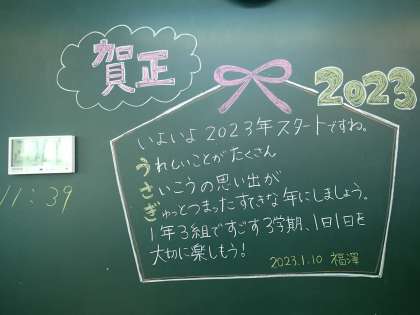 賀正
2023
いよいよ2023年スタートですね。
うれしいことがたくさん
さいこうの思い出が
ぎゅっとつまったすてきな年にしましょう。
1年3組ですごす3学期、1日1日を
大切に楽しもう!
2023.1.10 福澤
11:39